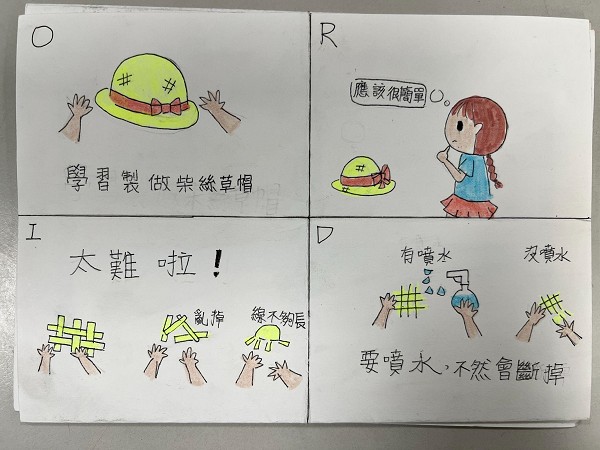 O
學習製做柴絲草帽
R
應該很簡單
I
太難啦!
亂掉
線不夠長
D
有噴水
沒噴水
要噴水,不然會斷掉